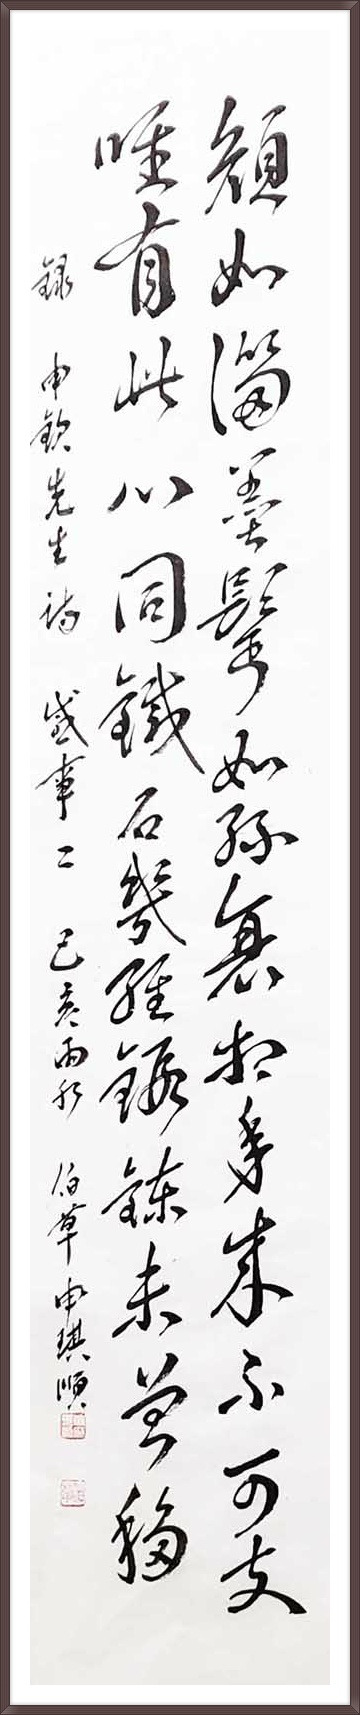 顔如淄墨鬢如絲衰相年來不可支
唯有此心同鐵石幾經鍛鍊未曾移
録 申欽先生詩 感事二 己亥雨水 伯草 申琪順